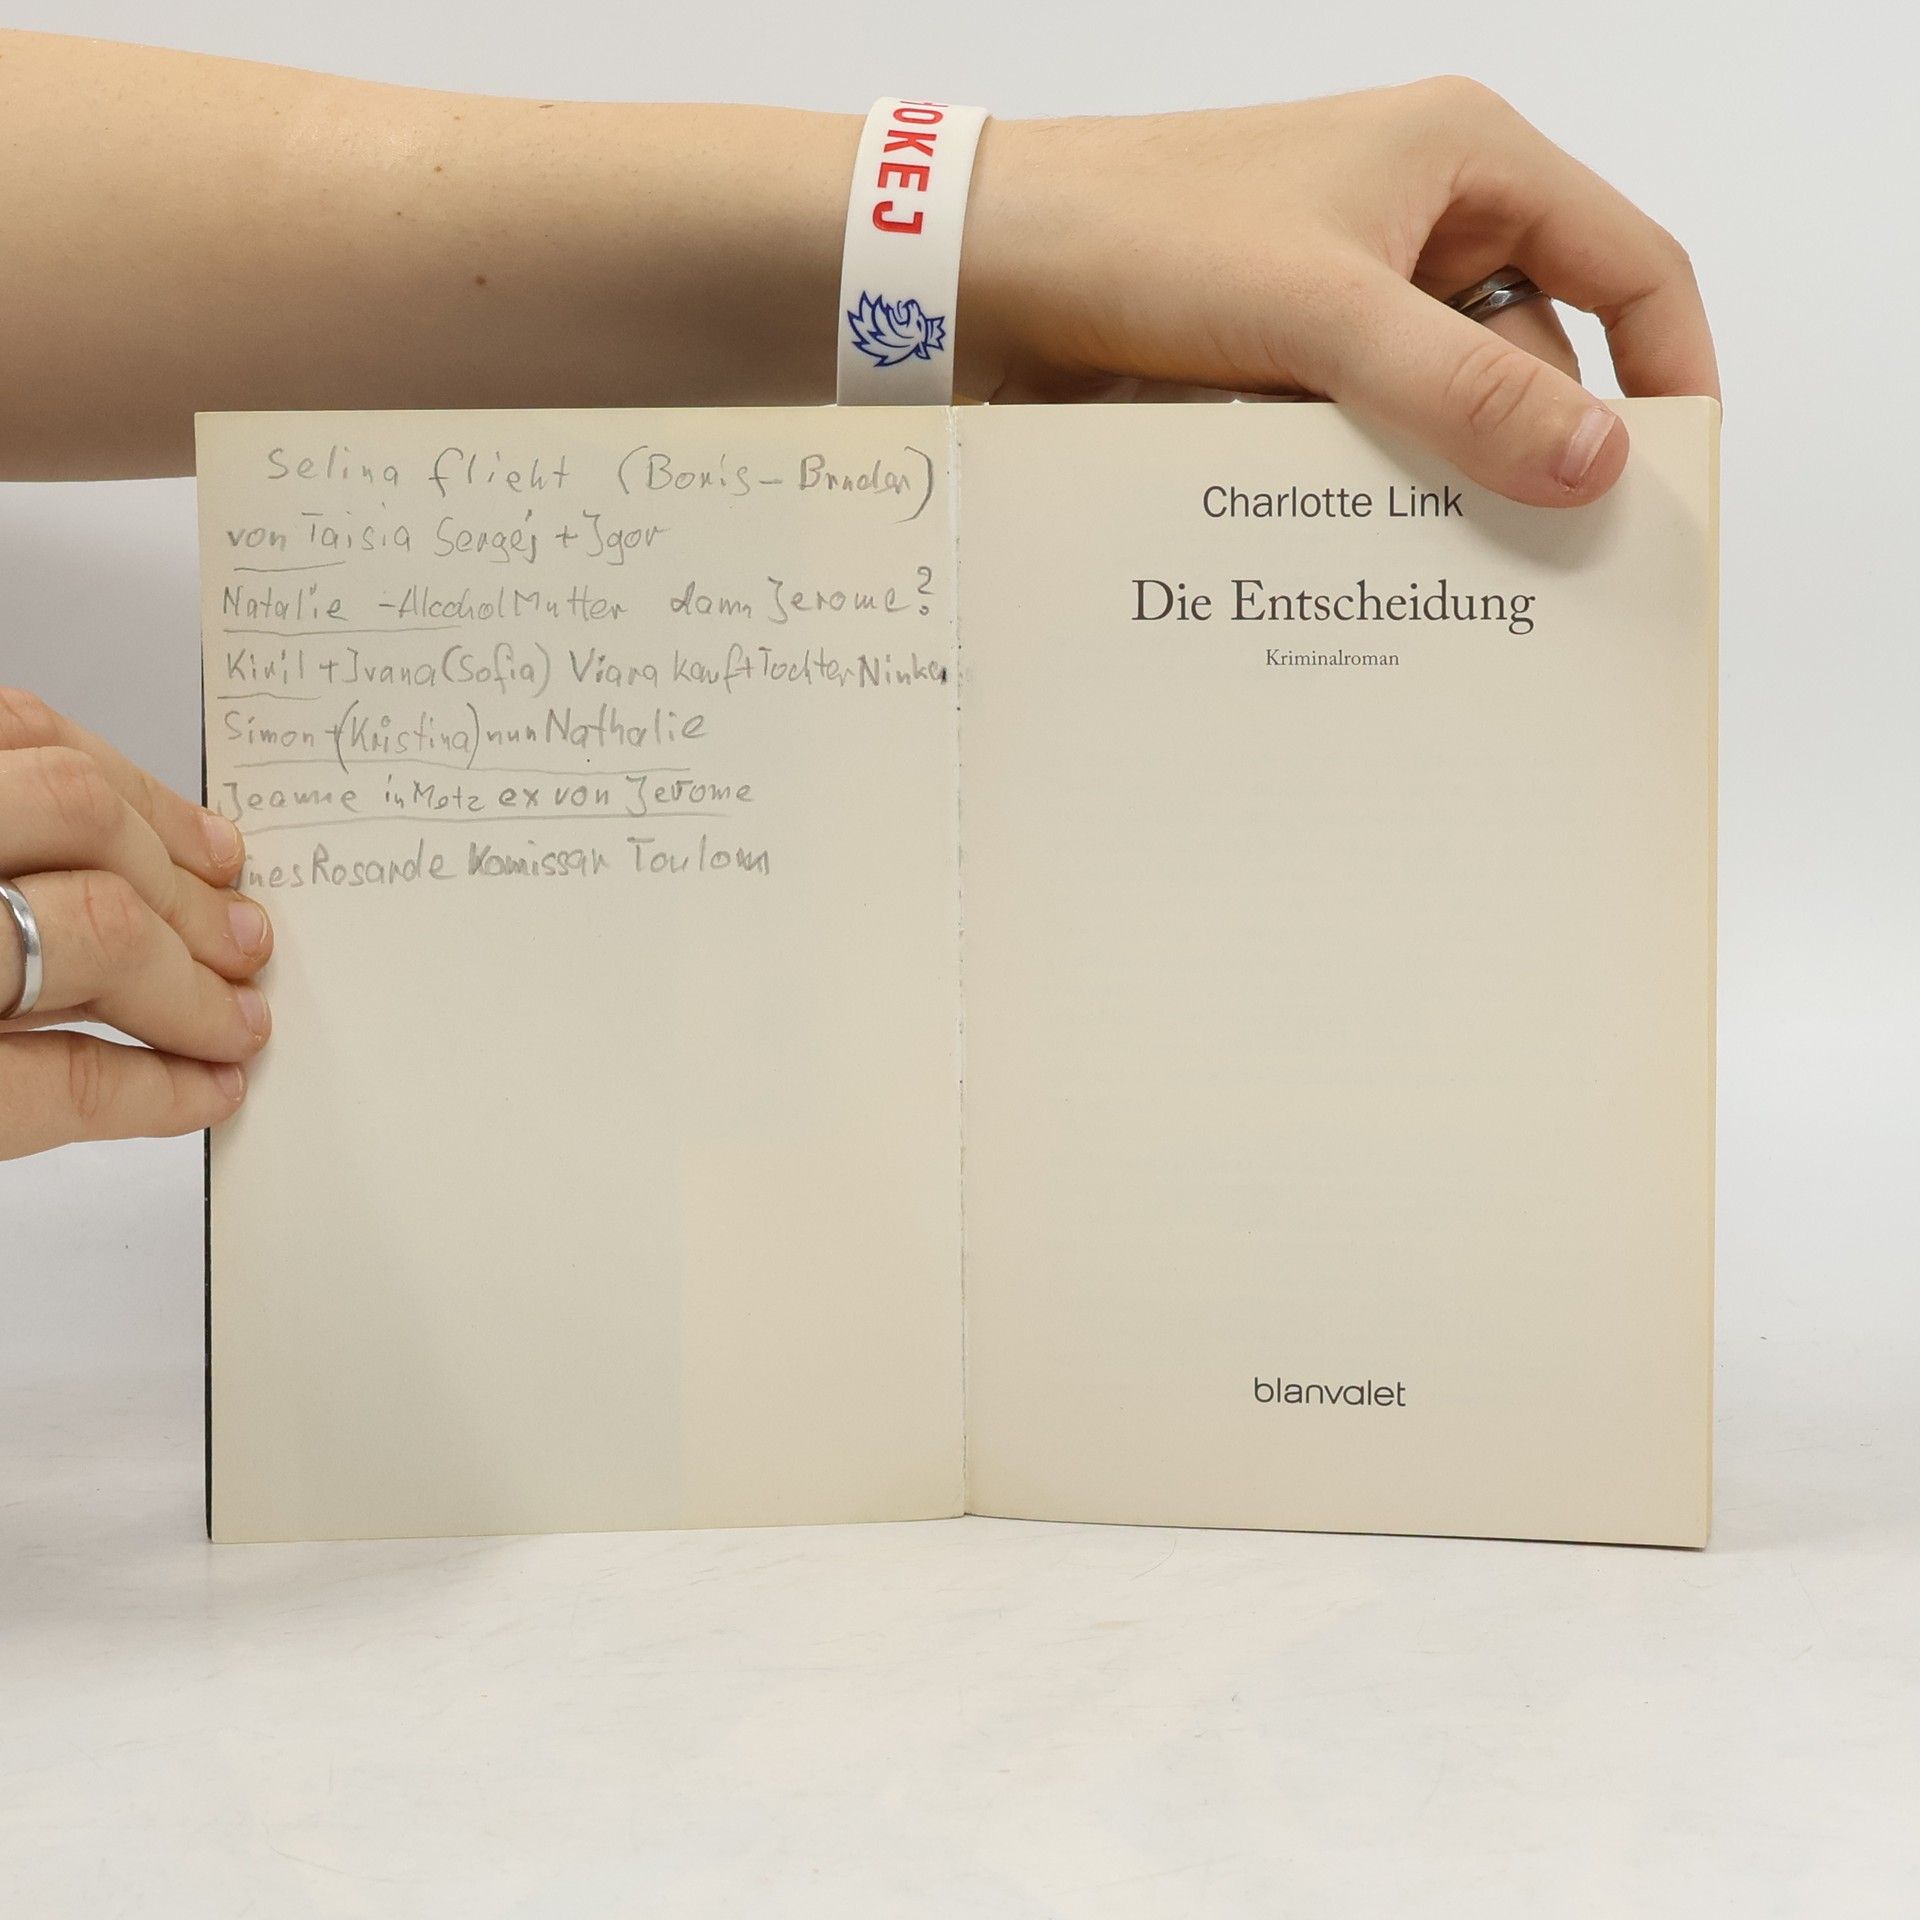 HOKEJ
Selina flieht (Boris - Bruder)
von Taisia Sergej + Igor
Natalie - Alcohol Mutter dann Jerome?
Kiril + Ivana (Sofia) Viara kauft Tochter Ninka
Simon + (Kristina) nun Nathalie
Jeanne in Metz ex von Jerome
Ines Rosarde Komissar Toulon
Charlotte Link
Die Entscheidung
Kriminalroman
blanvalet